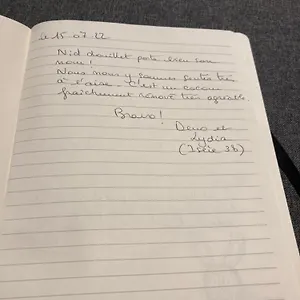 Le 15.07.22
Nid douillet porte bien son
nom !
Nous nous y sommes sentis très
à l'aise. C'est un cocon
fraîchement rénové très agréable.
Bravo !
Deno et
Lydia